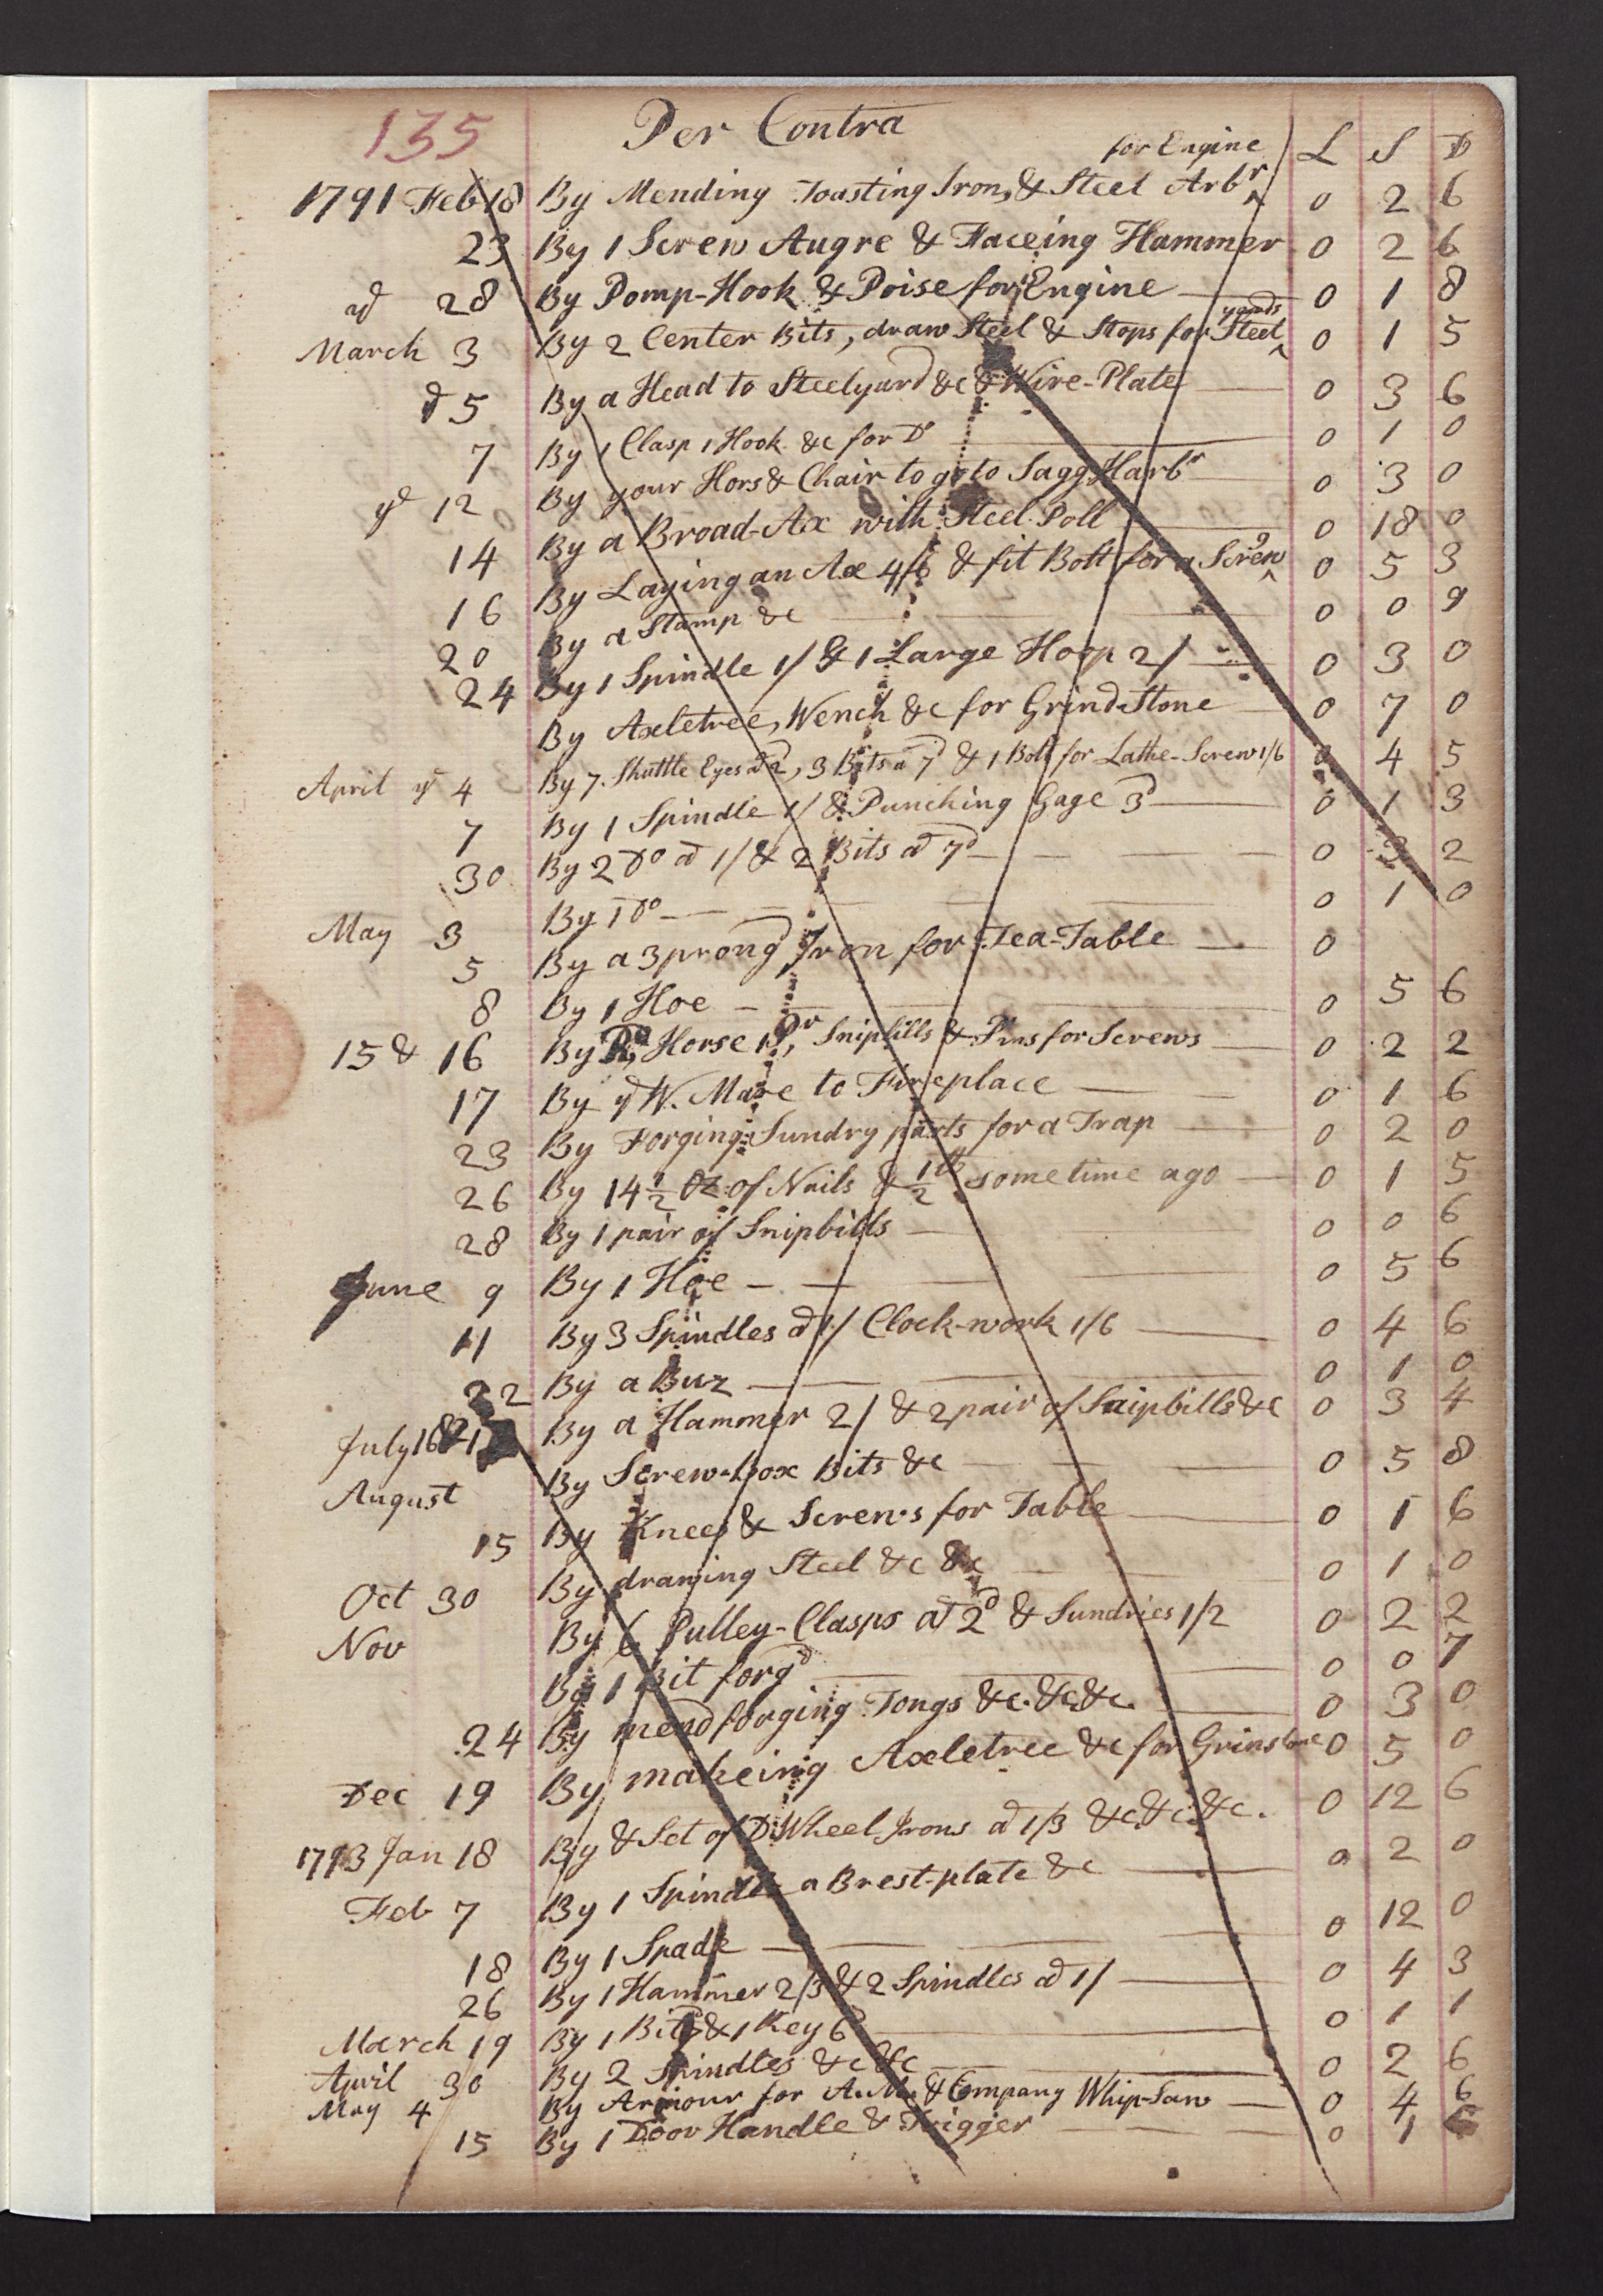 135 Per Contra
for Engine L S D
1791 Feb 18 By Mending Toasting Irons, & Steel Arbr 0 2 6
23 By 1 Screw Augre & Faceing Hammer 0 2 6
28 By Pomp-Hook & Poise for Engine 0 1 8
yards
March 3 By 2 Center Bits, draw Steel & Stops for Steel 0 1 5
5 By a Head to Steelyard &c & Wire-Plate 0 3 6
7 By 1 Clasp 1 Hook &c for Do 0 1 0
ye 12 By your Hors & Chair to go to Sagg Harbr 0 3 0
14 By a Broad-Ax with Steel Poll 0 18 0
16 By Laying an Axe 4/6 & fit Bolt for a Screw 9 0 5 3
20 By a Stamp &c 0 0 9
24 By 1 Spindle 1/ & 1 Large Hoop 2/ 0 3 0
By Axletree, Wench &c for Grind-Stone 0 7 0
April ye 4 By 7 Shuttle Eyes ad 2d, 3 Bits a 7d & 1 Bolt for Lathe-Screw 1/6 0 4 5
7 By 1 Spindle 1/ & Punching Gage 3d 0 1 3
30 By 2 Do ad 1/ & 2 Bits ad 7d 0 3 2
May 3 By 1 Do 0 1 0
5 By a 3 prong'd Iron for Tea-Table 0
8 By 1 Hoe 0 5 6
15 & 16 By Horse 1 Pr Snipbills & Pins for Screws 0 2 2
17 By ye W. Mare to Fireplace 0 1 6
23 By Forging Sundry parts for a Trap 0 2 0
26 By 14 1/2 Oz of Nails & 1/2 lb sometime ago 0 1 5
28 By 1 pair of Snipbills 0 0 6
June 9 By 1 Hoe 0 5 6
11 By 3 Spindles ad 1/ Clock-work 1/6 0 4 6
22 By a Buz 0 1 0
July 16 & By a Hammer 2/ & 2 pair of Snipbills &c 0 3 4
August By Screw-box Bits &c 0 5 8
15 By Knees & Screws for Table 0 1 6
Oct 30 By drawing Steel &c &c 0 1 0
Nov By 6 Pulley-Clasps ad 2d & Sundries 1/2 0 2 2
By 1 Bit forgd 0 0 7
24 By mend forging Tongs &c. &c &c. 0 3 0
Dec 19 By makeing Axeletree &c for Grinstone 0 5 0
1793 Jan 18 By & Set of D. Wheel Irons ad 1/3 &c &c &c. 0 12 6
Feb 7 By 1 Spindle a Brest-plate &c 0 2 0
18 By 1 Spade 0 12 0
26 By 1 Hammer 2/3 & 2 Spindles ad 1/ 0 4 3
March 19 By 1 Bit 7d & 1 Key 6d 0 1 1
April 30 By 2 Spindles &c &c 0 2 6
May 4 By Armour for A.M. & Company Whip-Saw 0 4 6
15 By 1 Door Handle & Trigger 0 1 6